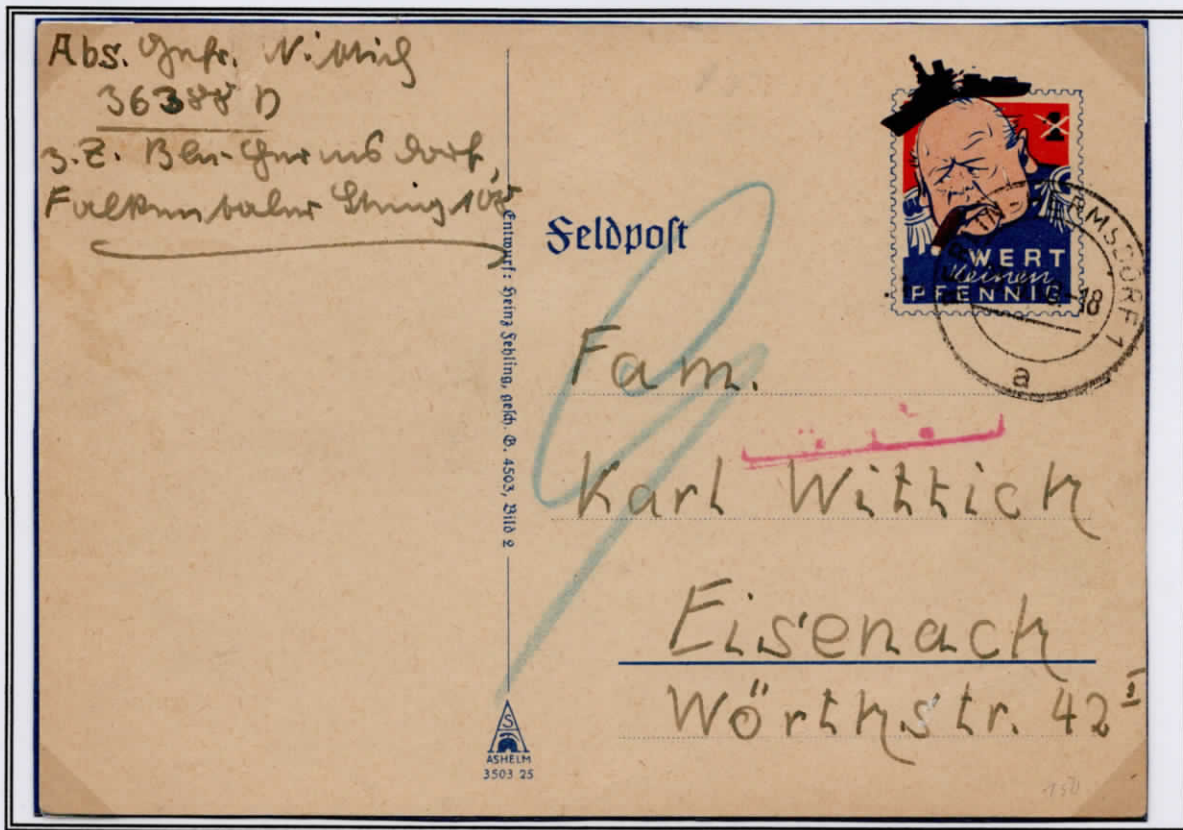 Abs. Gefr. Wittich
36388 D
z. Z. Bln-Hermsdorf,
Falkentaler Steig 108
Entwurf: Heinz Fehling, gesch. G. 4503, Bild 2
Feldpost
WERT
keinen
PFENNIG
BERLIN-HERMSDORF 1
-18
a
Fam.
Karl Wittich
Eisenach
Wörthstr. 42 I
S
ASHELM
3503 25